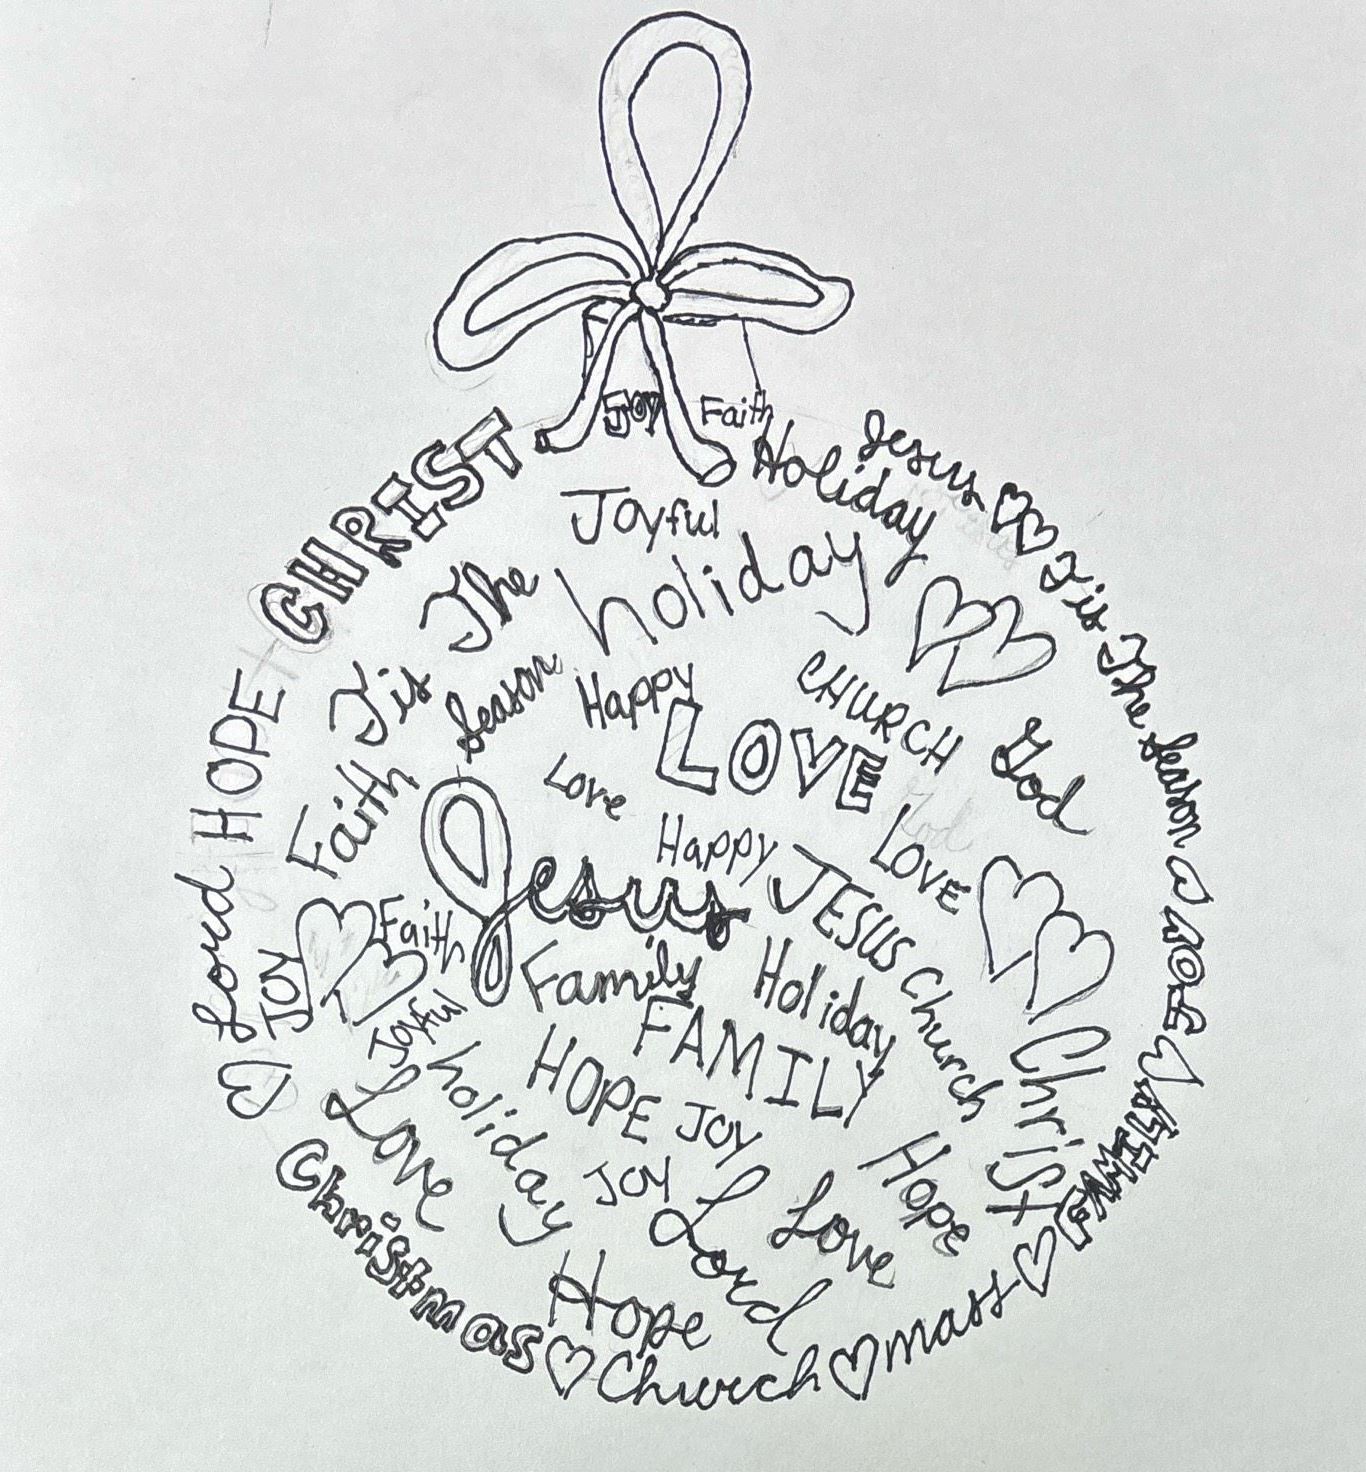 Joy
Faith
Holiday
Jesus
Tis The Season
LOVE
FAMILY
mass
Church
Christmas
Lord
HOPE
CHRIST
Joyful
holiday
Tis The
Season
Happy
LOVE
CHURCH
God
Faith
Love
Happy
Love
Jesus
JESUS
Church
Christ
JOY
Faith
Joyful
Family
Holiday
FAMILY
HOPE
JOY
JOY
holiday
Love
Lord
Love
Hope
Hope